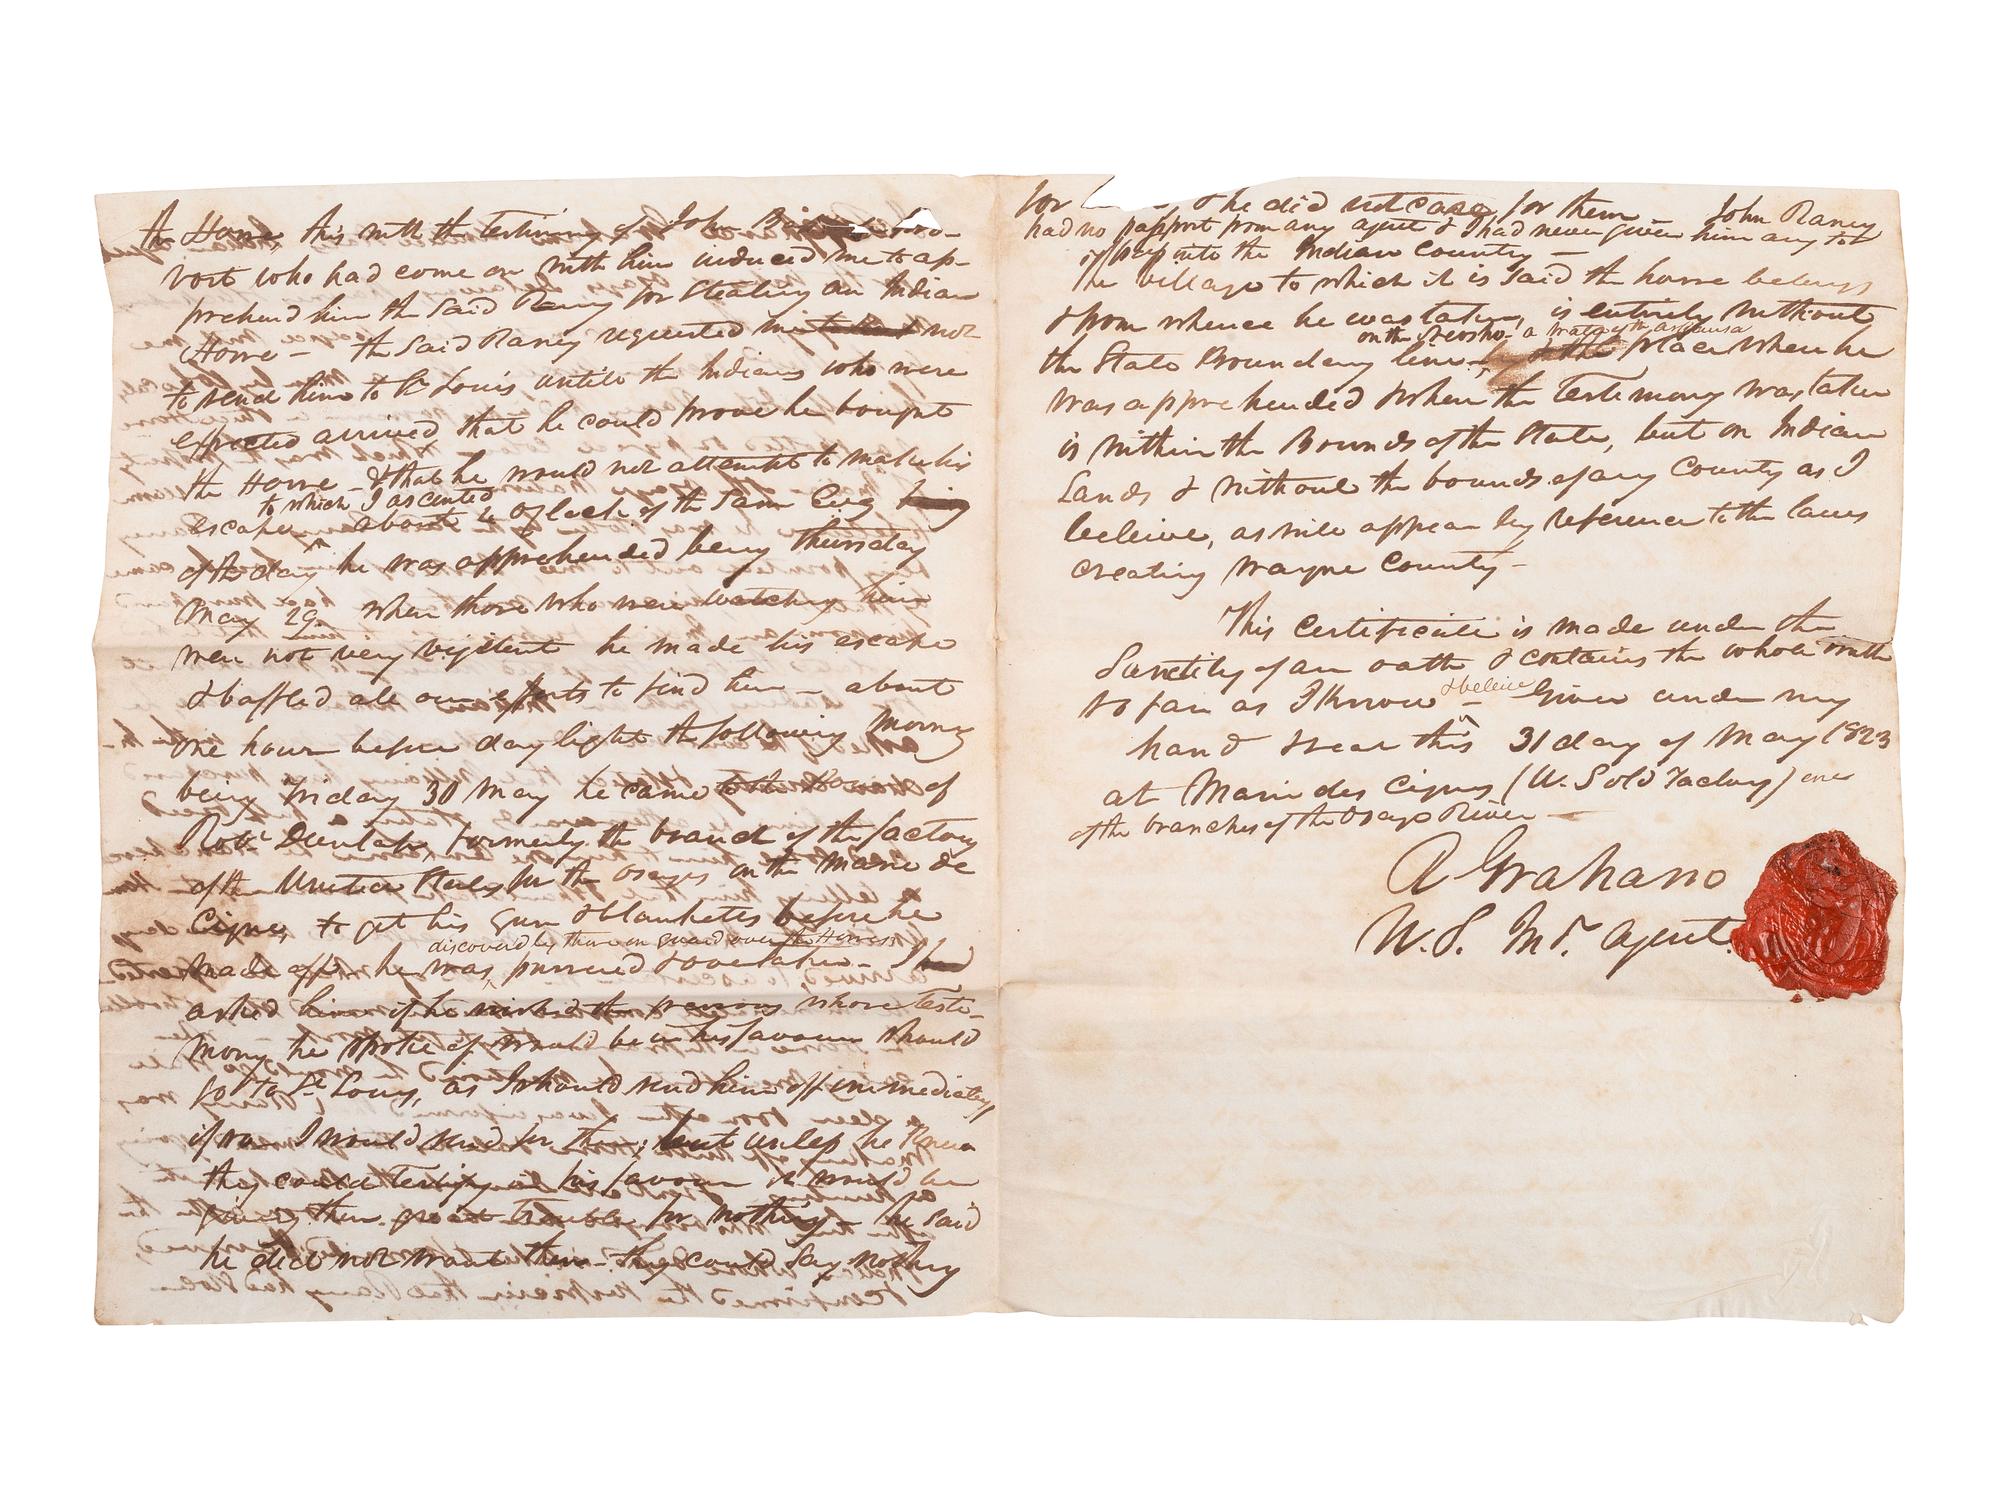 the Horse, this with the Testimony of John
vost who had come on with him induced me to ap-
prehend him the said Raney for Stealing an Indian
Horse — the said Raney requested me not
to send him to St Louis untill the Indians who were
expected arrived, that he could prove he bought
the Horse — & that he would not attempt to make his
to which I ascented
escape about o'clock of the same Evg
of the day he was apprehended being thursday
May 29. when those who were watching him
were not very vigilent he made his escape
& baffled all our efforts to find him — about
one hour before day light the following morng
being Friday 30 May he came to the House of
Robt Dunlap, formerly the branch of the factory
of the United States for the Osages on the Marie de
Cigne, to get his gun & blanketes before he
discovered by those on guard over the Horses
made off, he was pursued & overtaken — I had
asked him if he wished the persons whose Testi-
mony he spoke of would be in his favour should
go to St Louis, as I should send him off immediately,
if so I would send for them; but unless he knew
they could Testify in his favour it would be
giving them great trouble for nothing — he said
he did not want them — they could say nothing
for & he did not care for them — John Raney
had no passport from any agent & I had never given him any to
into the Indian Country —
The village to which it is said the horse belongs
& from whence he was taken, is entirely without
on the Neosho, a water of the Arkansa
the State Boundery line, & the place where he
was apprehended & where the Testimony was taken
is within the Bounds of the State, but on Indian
Lands & without the bounds of any County as I
beleive, as will appear by reference to the laws
creating Wayne County —
This Certificate is made under the
Sanctity of an oath & contains the whole truth
so far as I know
& beleive
— Given under my
hand & seal this 31 day of May 1823
at Marie des Cignes (U. S old Factory) one
of the branches of the Osage River —
R Graham
U. S. In. Agent.